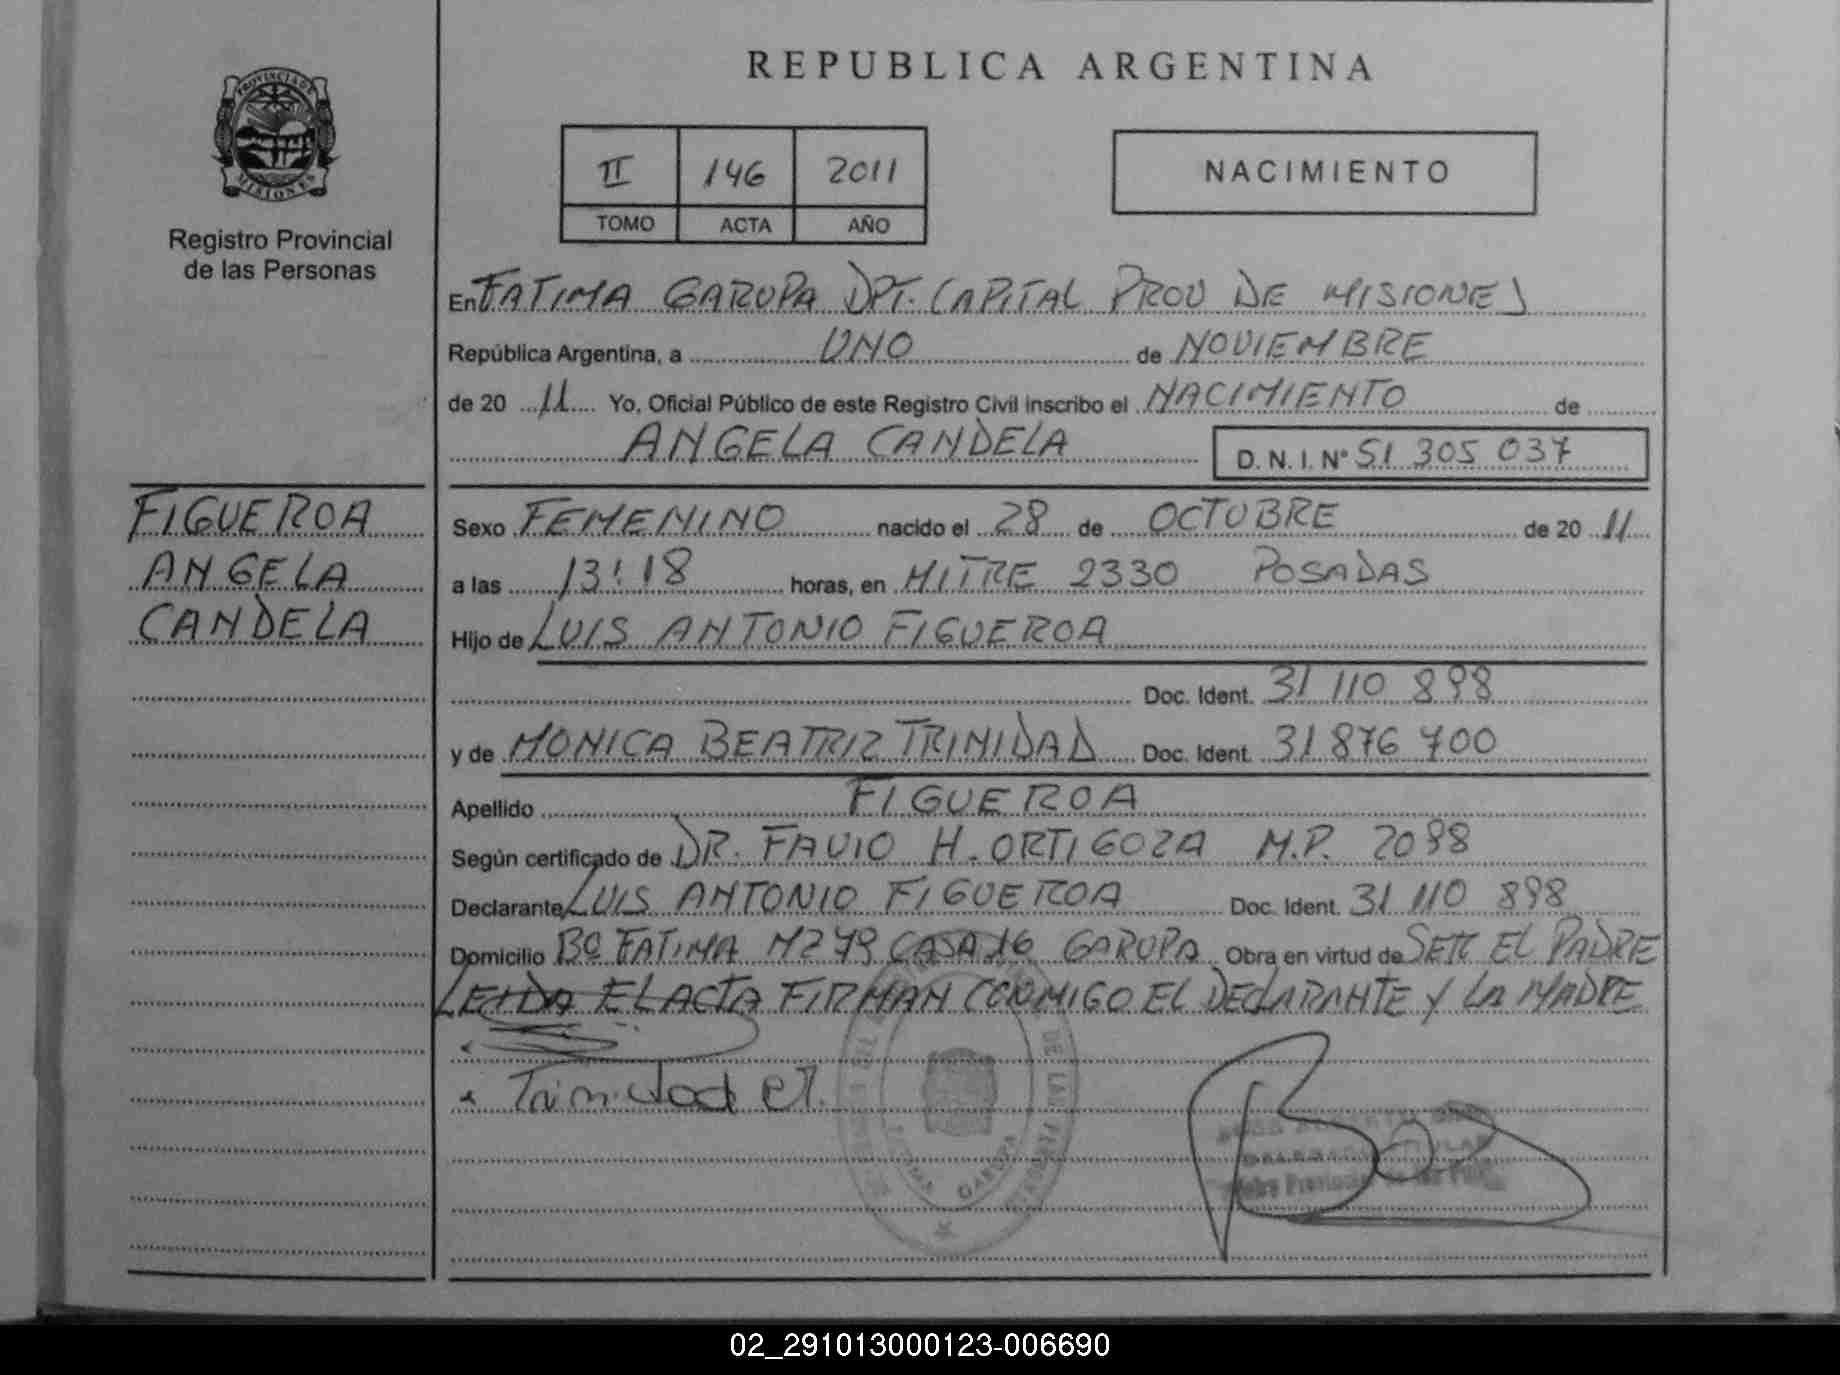 REPUBLICA ARGENTINA
PROVINCIA DE
MISIONES
Registro Provincial
de las Personas
II 146 2011
TOMO ACTA AÑO
NACIMIENTO
En FATIMA GARUPA DPT. CAPITAL PROV DE MISIONES
República Argentina, a UNO de NOVIEMBRE
de 20 11 Yo, Oficial Público de este Registro Civil inscribo el NACIMIENTO de
ANGELA CANDELA D.N.I. Nº 51 305 037
FIGUEROA
ANGELA
CANDELA
Sexo FEMENINO nacido el 28 de OCTUBRE de 20 11
a las 13:18 horas, en MITRE 2330 POSADAS
Hijo de LUIS ANTONIO FIGUEROA
Doc. Ident. 31 110 898
y de MONICA BEATRIZ TRINIDAD Doc. Ident. 31 876 700
Apellido FIGUEROA
Según certificado de DR. FAVIO H. ORTIGOZA M.P. 2098
Declarante LUIS ANTONIO FIGUEROA Doc. Ident. 31 110 898
Domicilio Bº FATIMA MZ 79 CASA 16 GARUPA Obra en virtud de SER EL PADRE
LEIDA EL ACTA FIRMAN CONMIGO EL DECLARANTE Y LA MADRE
Trinidad
DE LAS
GARUPA
02_291013000123-006690